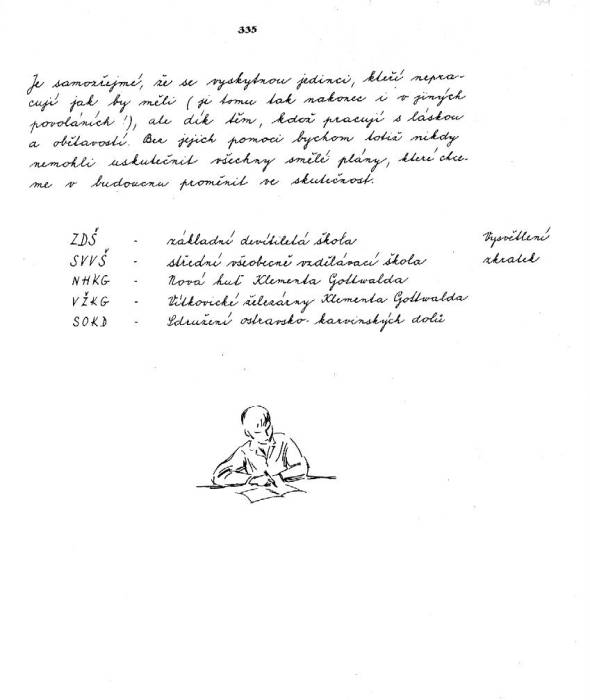 335
Je samozřejmé, že se vyskytnou jedinci, kteří nepra-
cují jak by měli (je tomu tak nakonec i v jiných
povoláních!), ale dík těm, kdož pracují s láskou
a obětavostí. Bez jejich pomoci bychom totiž nikdy
nemohli uskutečnit všechny smělé plány, které chce-
me v budoucnu proměnit ve skutečnost.
ZDŠ - základní devítiletá škola Vysvětlení
SVVŠ - střední všeobecně vzdělávací škola zkratek
NHKG - Nová huť Klementa Gottwalda
VŽKG - Vítkovické železárny Klementa Gottwalda
SOKD - Sdružení ostravsko-karvinských dolů